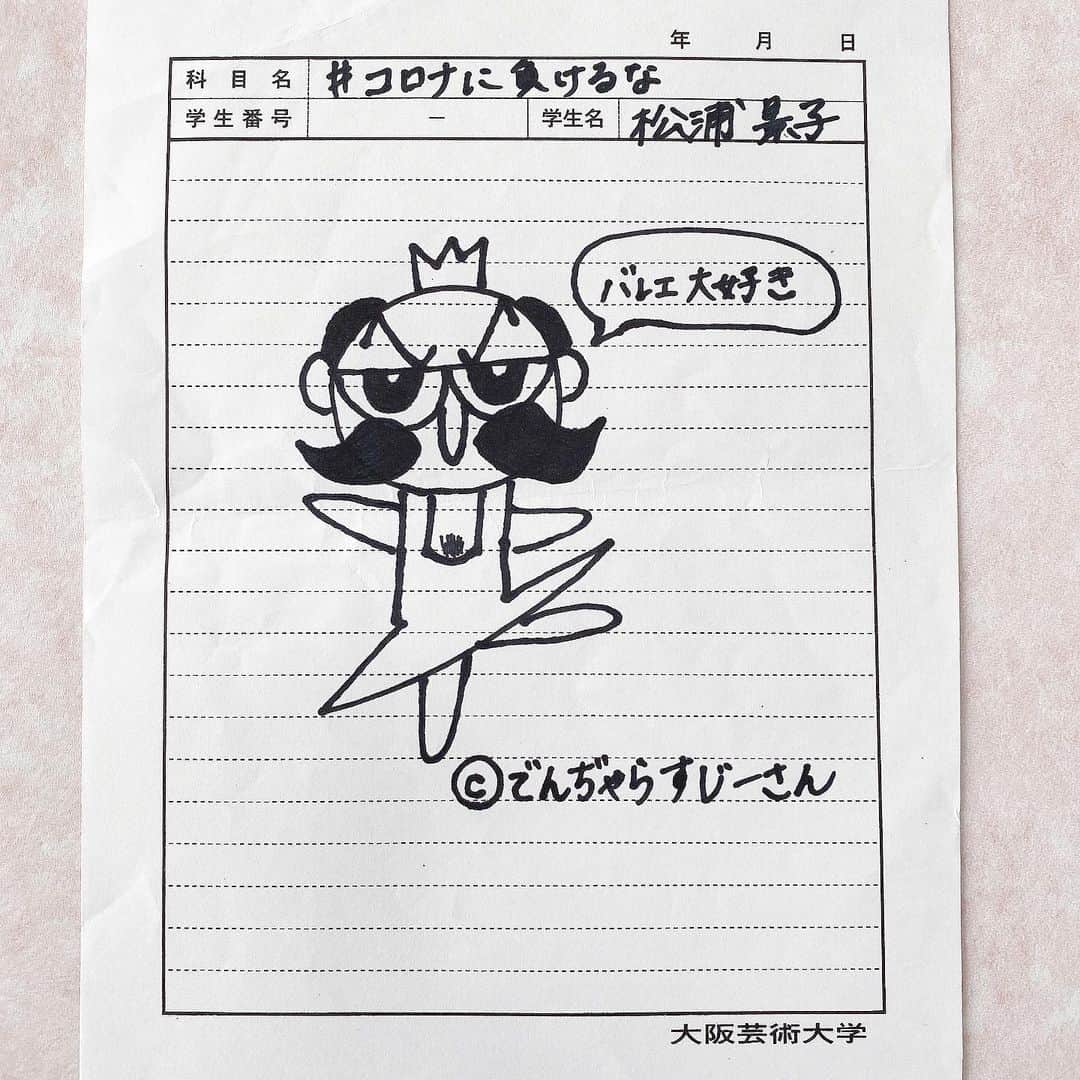 年 月 日
科目名 #コロナに負けるな
学生番号 － 学生名 松浦景子
バレエ大好き
©でんぢゃらすじーさん
大阪芸術大学